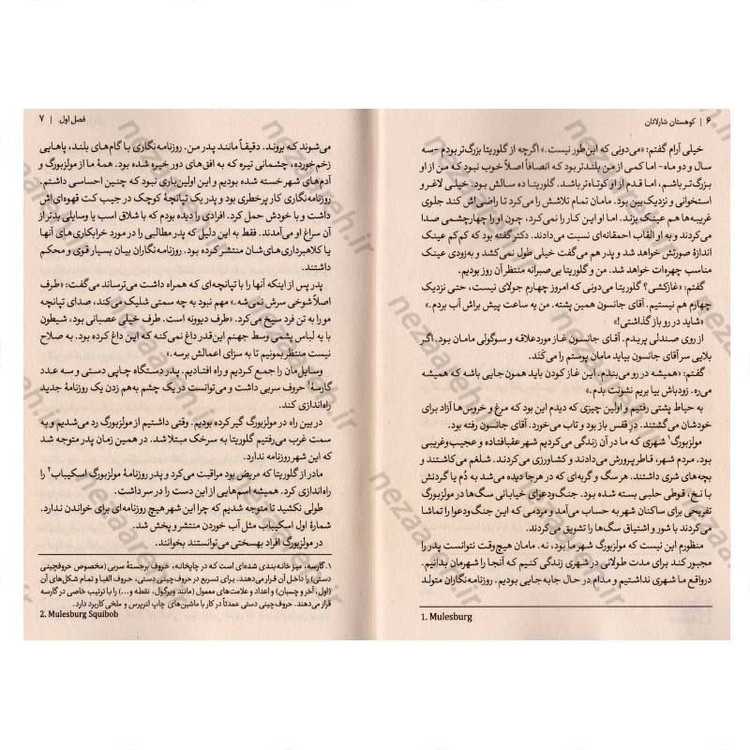 ۶ | کوهستان شارلاتان
خیلی آرام گفتم: «می‌دونی که این‌طور نیست.» اگرچه از گلوریتا بزرگ‌تر بودم –سه
سال و دو ماه– اما کمی از من بلندتر بود که انصافاً اصلاً خوب نبود که من از او
بزرگ‌تر باشم، اما قدم از او کوتاه‌تر باشد. گلوریتا ده سالش بود. خیلی لاغر و
استخوانی و نزدیک‌بین بود. مامان تمام تلاشش را می‌کرد تا راضی‌اش کند جلوی
غریبه‌ها هم عینک بزند. اما او این کار را نمی‌کرد، چون او را چهارچشمی صدا
می‌کردند و به او القاب احمقانه‌ای می‌دادند. دکتر گفته بود که کم‌کم عینک
اندازهٔ صورتش خواهد شد و پدر هم می‌گفت خیلی طول نمی‌کشد و به‌زودی عینک
مناسب چهره‌ات خواهد شد. من و گلوریتا بی‌صبرانه منتظر آن روز بودیم.
گفتم: «غازکشی؟ گلوریتا می‌دونی که امروز چهارم جولای نیست، حتی نزدیک
چهارم هم نیستیم. آقای جانسون همین پشته. من یه ساعت پیش براش آب بردم.»
«شاید در رو باز گذاشتی!»
از روی صندلی پریدم. آقای جانسون غاز موردعلاقه و سوگولی مامان بود. اگر
بلایی سر آقای جانسون بیاید مامان پوستم را می‌کَند.
گفتم: «همیشه در رو می‌بندم. این غاز کودن باید همون‌جایی باشه که همیشه
می‌ره. زودباش بیا بریم نشونت بدم.»
به حیاط پشتی رفتیم و اولین چیزی که دیدم این بود که مرغ و خروس‌ها آزاد برای
خودشان می‌گشتند. در قفس باز بود و تاب می‌خورد. آقای جانسون رفته بود.
مولزبورگ۱ شهری که ما در آن زندگی می‌کردیم شهر عقب‌افتاده و عجیب‌وغریبی
بود. مردم شهر، قاطر پرورش می‌دادند و کشاورزی می‌کردند. شلغم می‌کاشتند و
بچه‌های شری داشتند. هر سگ و گربه‌ای که در هرجا دیده می‌شد به دُم یا گردنش
با نخ، قوطی حلبی بسته شده بود. جنگ‌ودعوای خیابانی سگ‌ها در مولزبورگ
تفریحی برای ساکنان شهر به حساب می‌آمد و مردمی که این جنگ‌ودعوا را تماشا
می‌کردند با شور و اشتیاق سگ‌ها را تشویق می‌کردند.
منظورم این نیست که مولزبورگ شهر ما بود، نه. مامان هیچ‌وقت نتوانست پدر را
مجبور کند برای مدت طولانی در شهری زندگی کنیم که آنجا را شهرمان بدانیم.
درواقع ما شهری نداشتیم و مدام در حال جابه‌جایی بودیم. روزنامه‌نگاران متولد
1. Mulesburg
فصل اول | ۷
می‌شوند که بروند. دقیقاً مانند پدر من. روزنامه‌نگاری با گام‌های بلند، پاهایی
زخم‌خورده، چشمانی تیره که به افق‌های دور خیره شده بود. همهٔ ما از مولزبورگ و
آدم‌های شهر خسته شده بودیم و این اولین‌باری نبود که چنین احساسی داشتیم.
روزنامه‌نگاری کار پرخطری بود و پدر یک تپانچهٔ کوچک در جیب کت قهوه‌ای‌اش
داشت و با خودش حمل کرد. افرادی را دیده بودم که با شلاق اسب یا وسایلی بدتر از
آن سراغ او می‌آمدند. فقط به این دلیل که پدر مطالبی را در مورد خرابکاری‌های آنها
یا کلاهبرداری‌های‌شان منتشر کرده بود. روزنامه‌نگاران بیان بسیار قوی و محکم
داشتند.
پدر پس از اینکه آنها را با تپانچه‌ای که همراه داشت می‌ترساند می‌گفت: «طرف
اصلاً شوخی سرش نمی‌شه.» مهم نبود به چه سمتی شلیک می‌کند، صدای تپانچه
مو را به تن فرد سیخ می‌کرد. «طرف دیوونه است. طرف خیلی عصبانی بود، شیطون
با یه لباس پشمی وسط جهنم این‌قدر داغ نمی‌کنه که این داغ کرده بود. به صلاح
نیست منتظر بمونیم تا به سزای اعمالش برسه.»
وسایل‌مان را جمع کردیم و راه افتادیم. پدر دستگاه چاپی دستی و سه عدد
گارسه۱ حروف سربی داشت و می‌توانست در یک چشم به‌هم زدن یک روزنامهٔ جدید
راه‌اندازی کند.
در بین راه در مولزبورگ گیر کرده بودیم. وقتی داشتیم از مولزبورگ رد می‌شدیم و به
سمت غرب می‌رفتیم گلوریتا به سرخک مبتلا شد. در همین زمان پدر متوجه شد
که این شهر روزنامه ندارد.
مادر از گلوریتا که مریض بود مراقبت می‌کرد و پدر روزنامهٔ مولزبورگ اسکیباب۲ را
راه‌اندازی کرد. همیشه اسم‌هایی از این دست را در سر داشت.
طولی نکشید تا متوجه شدیم که چرا این شهر هیچ روزنامه‌ای برای خواندن ندارد.
شمارهٔ اول اسکیباب مثل آب خوردن منتشر و پخش شد.
در مولزبورگ افراد به‌سختی می‌توانستند بخوانند.
۱. گارسه، میز خانه‌بندی شده‌ای است که در چاپخانه، حروف برجستهٔ سربی (مخصوص حروفچینی
دستی) را داخل آن قرار می‌دهند. برای تسریع در حروفچینی دستی، حروف الفبا و تمام شکل‌های آن
(اول، آخر و چسبان) و اعداد و علامت‌های معمول (مانند ویرگول، نقطه و...) را با ترتیبی خاص در گارسه
قرار می‌دهند. حروف‌چینی دستی عمدتاً در کار با ماشین‌های چاپ لترپرس و ملخی کاربرد دارد.
2. Mulesburg Squibob
nezaaeh.ir